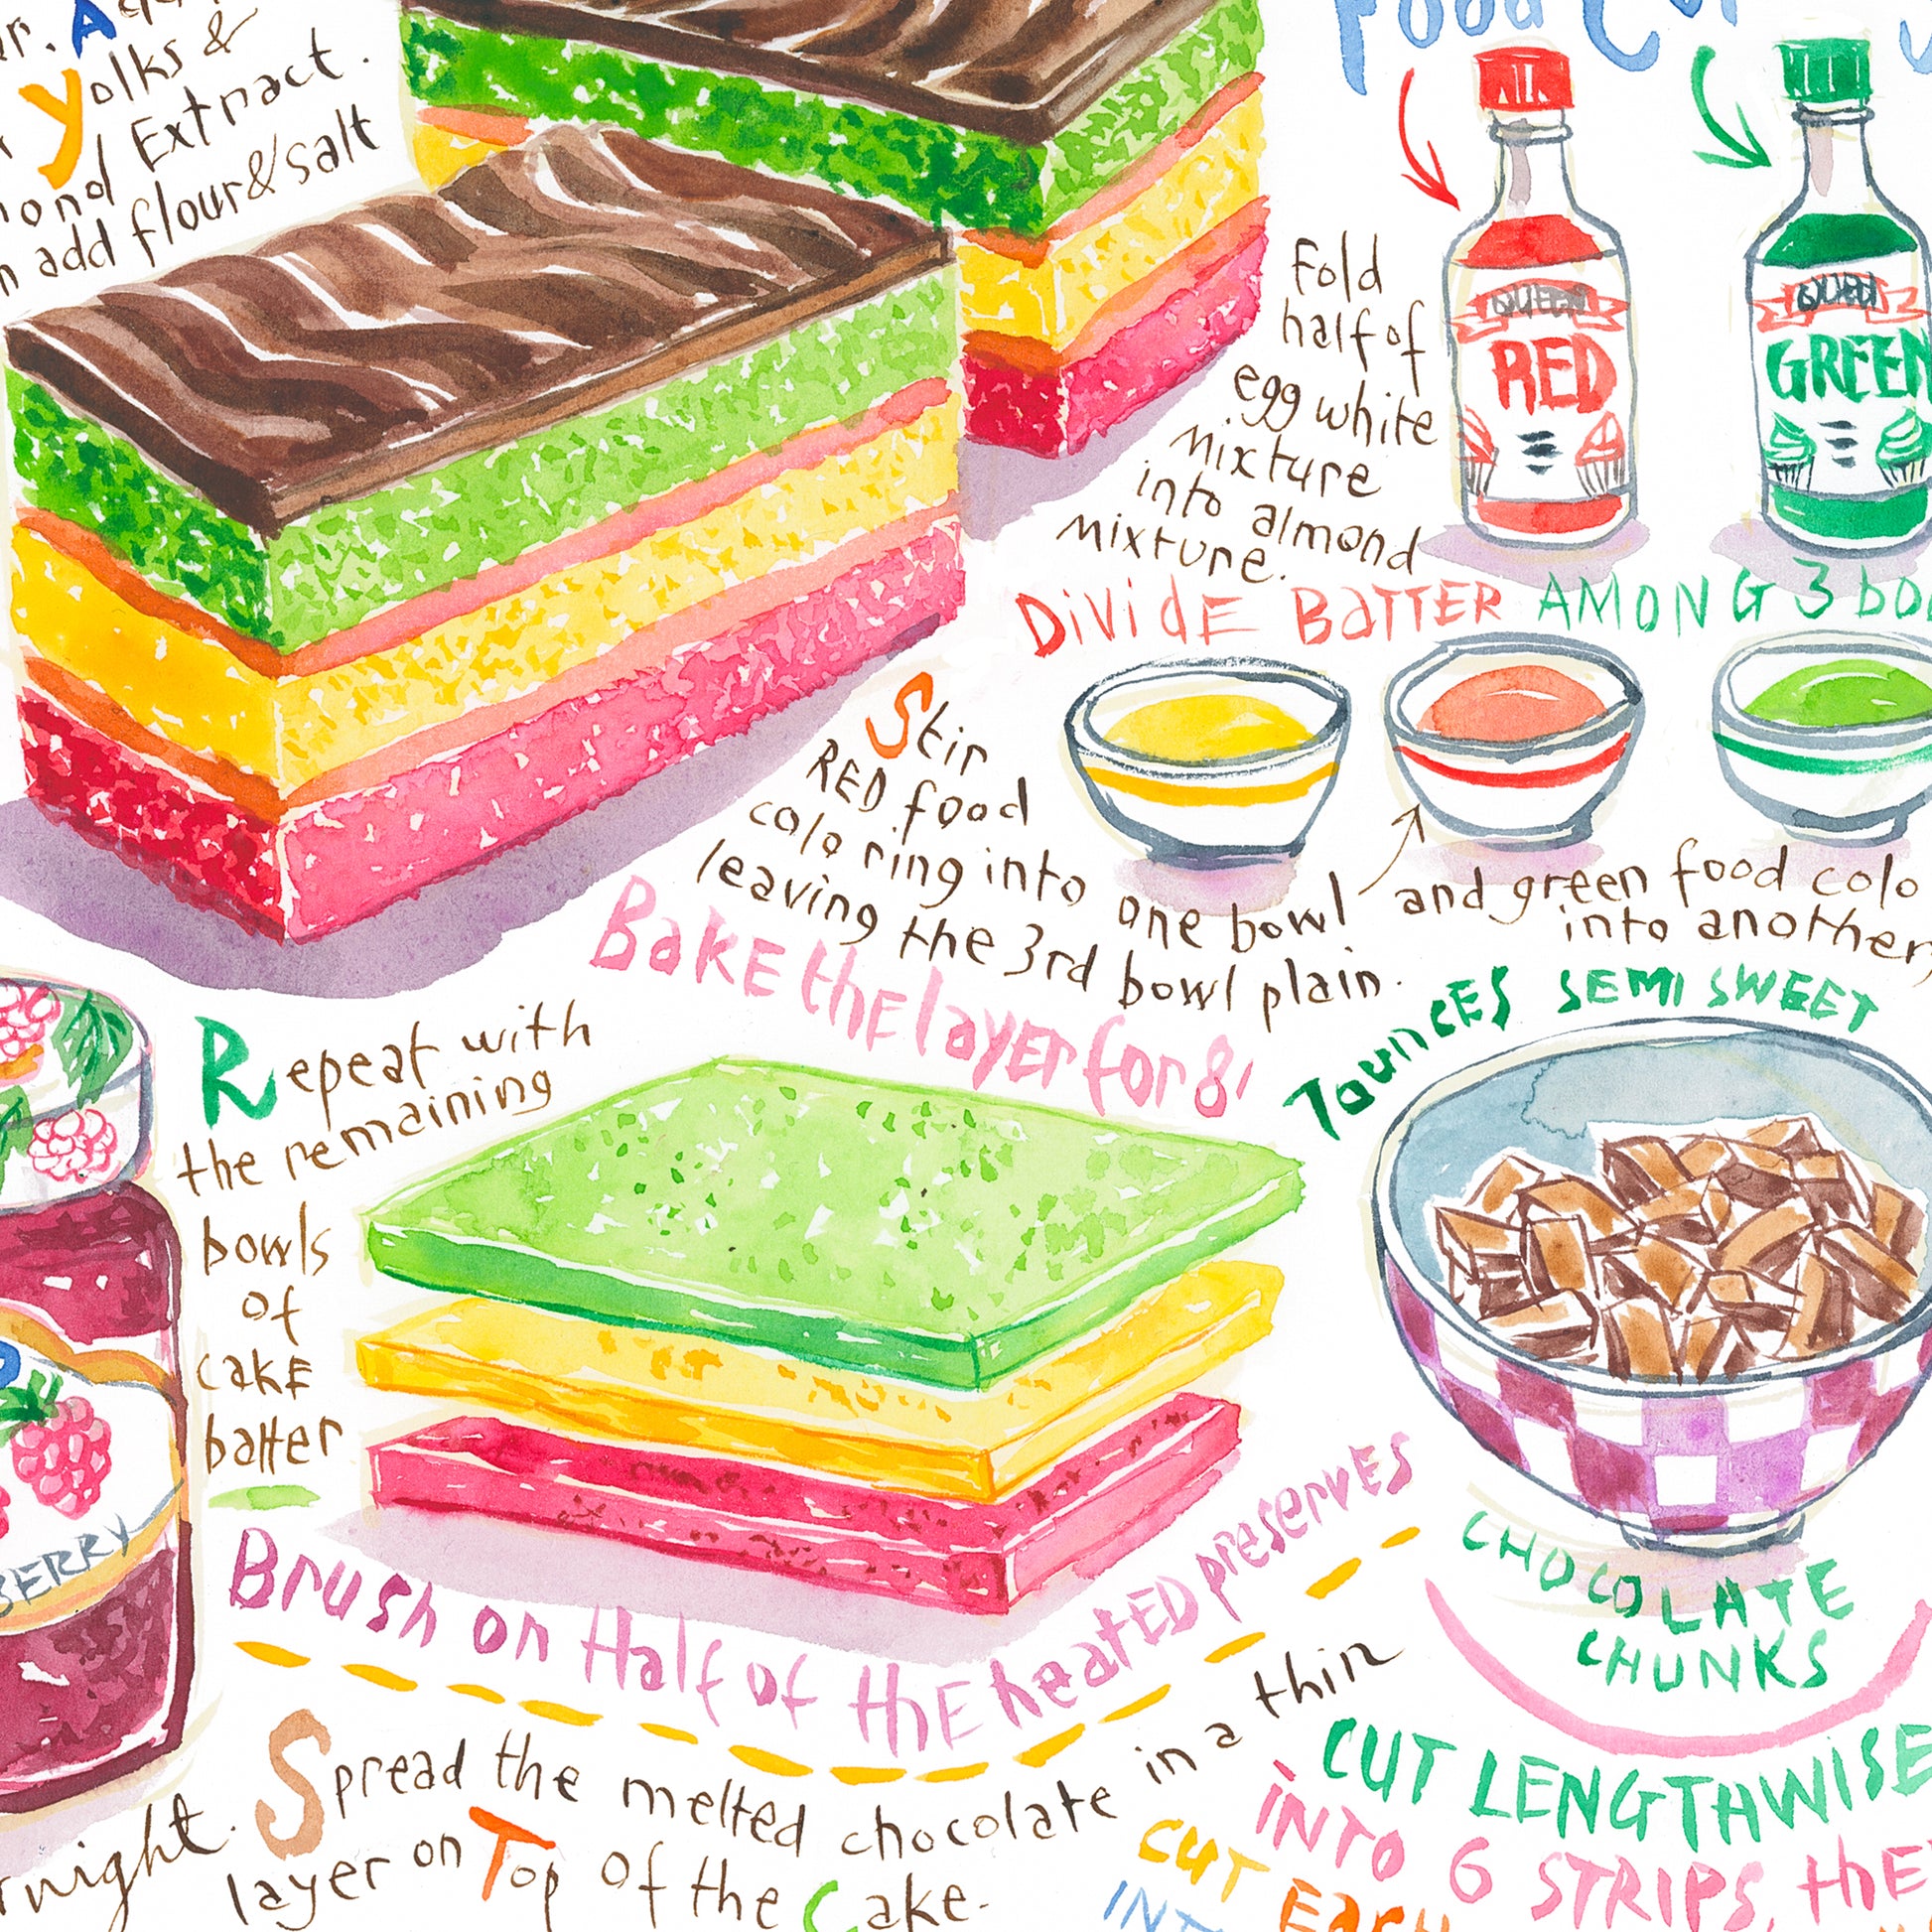 yolks &
Extract.
add flour & salt
Food
QUEEN
RED
QUEEN
GREEN
Fold
half of
egg white
mixture
into almond
mixture.
DiVidE BaTTER AMONG 3
Stir
RED food
coloring into one bowl
leaving the 3rd bowl plain.
and green food colo
into another,
BaKE thE layEr for 8
Repeat with
the remaining
bowls
of
caKE
batter
7 ounCES SEMI SWEET
CHOCOLATE
CHUNKS
BERRY
Brush on Half of thE heatED preservES
Spread the melted chocolate in a thin
layer on Top of the Cake.
CUT LENGTHWISE
iNTO 6 STRIPS,
CUT EacH
INT